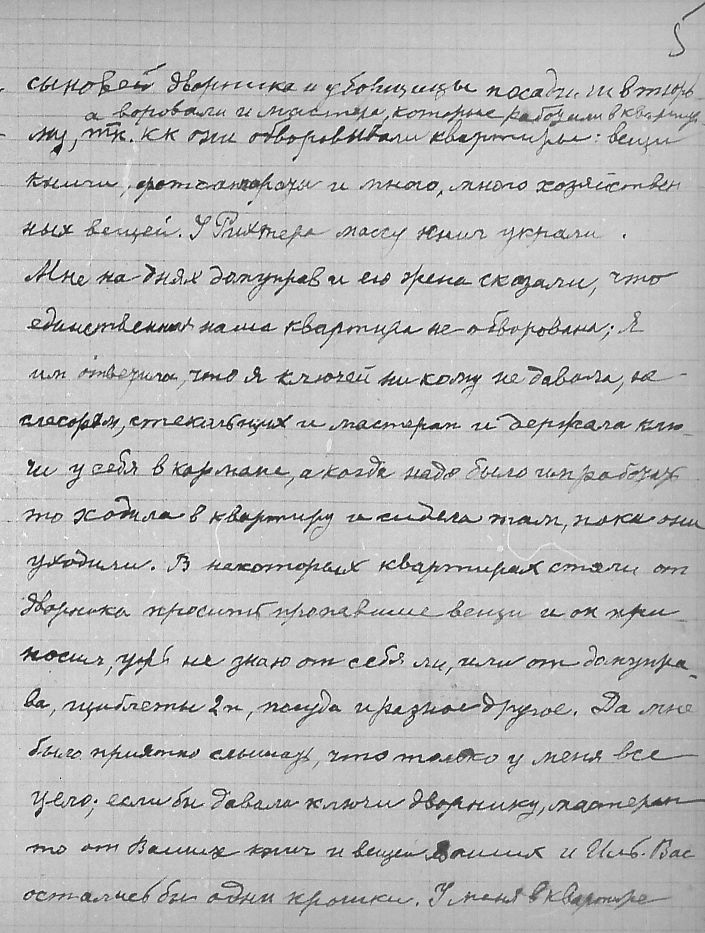 5
сыновей дворника и уборщицы посадили в тюрь-
а воровали и мастера, которые работали в квартир.
му, т.к. они обворовывали квартиры: вещи
книги, фотоаппараты и много, много хозяйствен
ных вещей. У Рихтера массу книг украли.
Мне на-днях домуправ и его жена сказали, что
единственная наша квартира не обворована; Я
им ответила, что я ключей никому не давала,
слесарям, стекольщик и мастерам и держала клю-
чи у себя в кармане, а когда надо было им работать
то ходила в квартиру и сидела там, пока они
уходили. В некоторых квартирах стали от
дворника просить пропавшие вещи и он при-
носил, уж не знаю от себя ли, или от домупра-
ва, щиблеты 2 п, посуда и разное другое. Да мне
было приятно слышать, что только у меня все
цело; если бы давала ключи дворнику, мастерам
то от Ваших книг и вещей Ваших и Иль. Вас
остались бы одни крошки. У меня в квартире